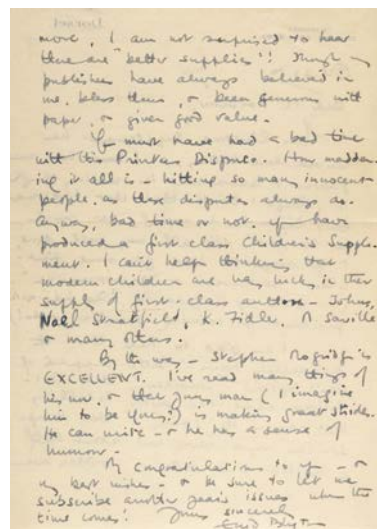 more, I am not surprised to hear
there are "better supplies"! Though my
publishers have always believed in
me, bless them, & been generous with
paper, & given good value.
You must have had a bad time
with this Printers Dispute. How madden-
ing it all is - hitting so many innocent
people, as these disputes always do.
Anyway, bad time or not, you have
produced a first class Children's Supple-
ment. I can't help thinking that
modern children are very lucky in their
supply of first-class authors - Johns,
Noel Streatfield, K. Fidler, M. Saville
& many others.
By the way - Stephen Mogridge is
EXCELLENT. I've read many things of
his now, & that young man (I imagine
him to be young!) is making great strides.
He can write - & he has a sense of
humour.
My congratulations to you - &
my best wishes - & be sure to let me
subscribe another year's issues when the
time comes! Yours sincerely
Enid Blyton